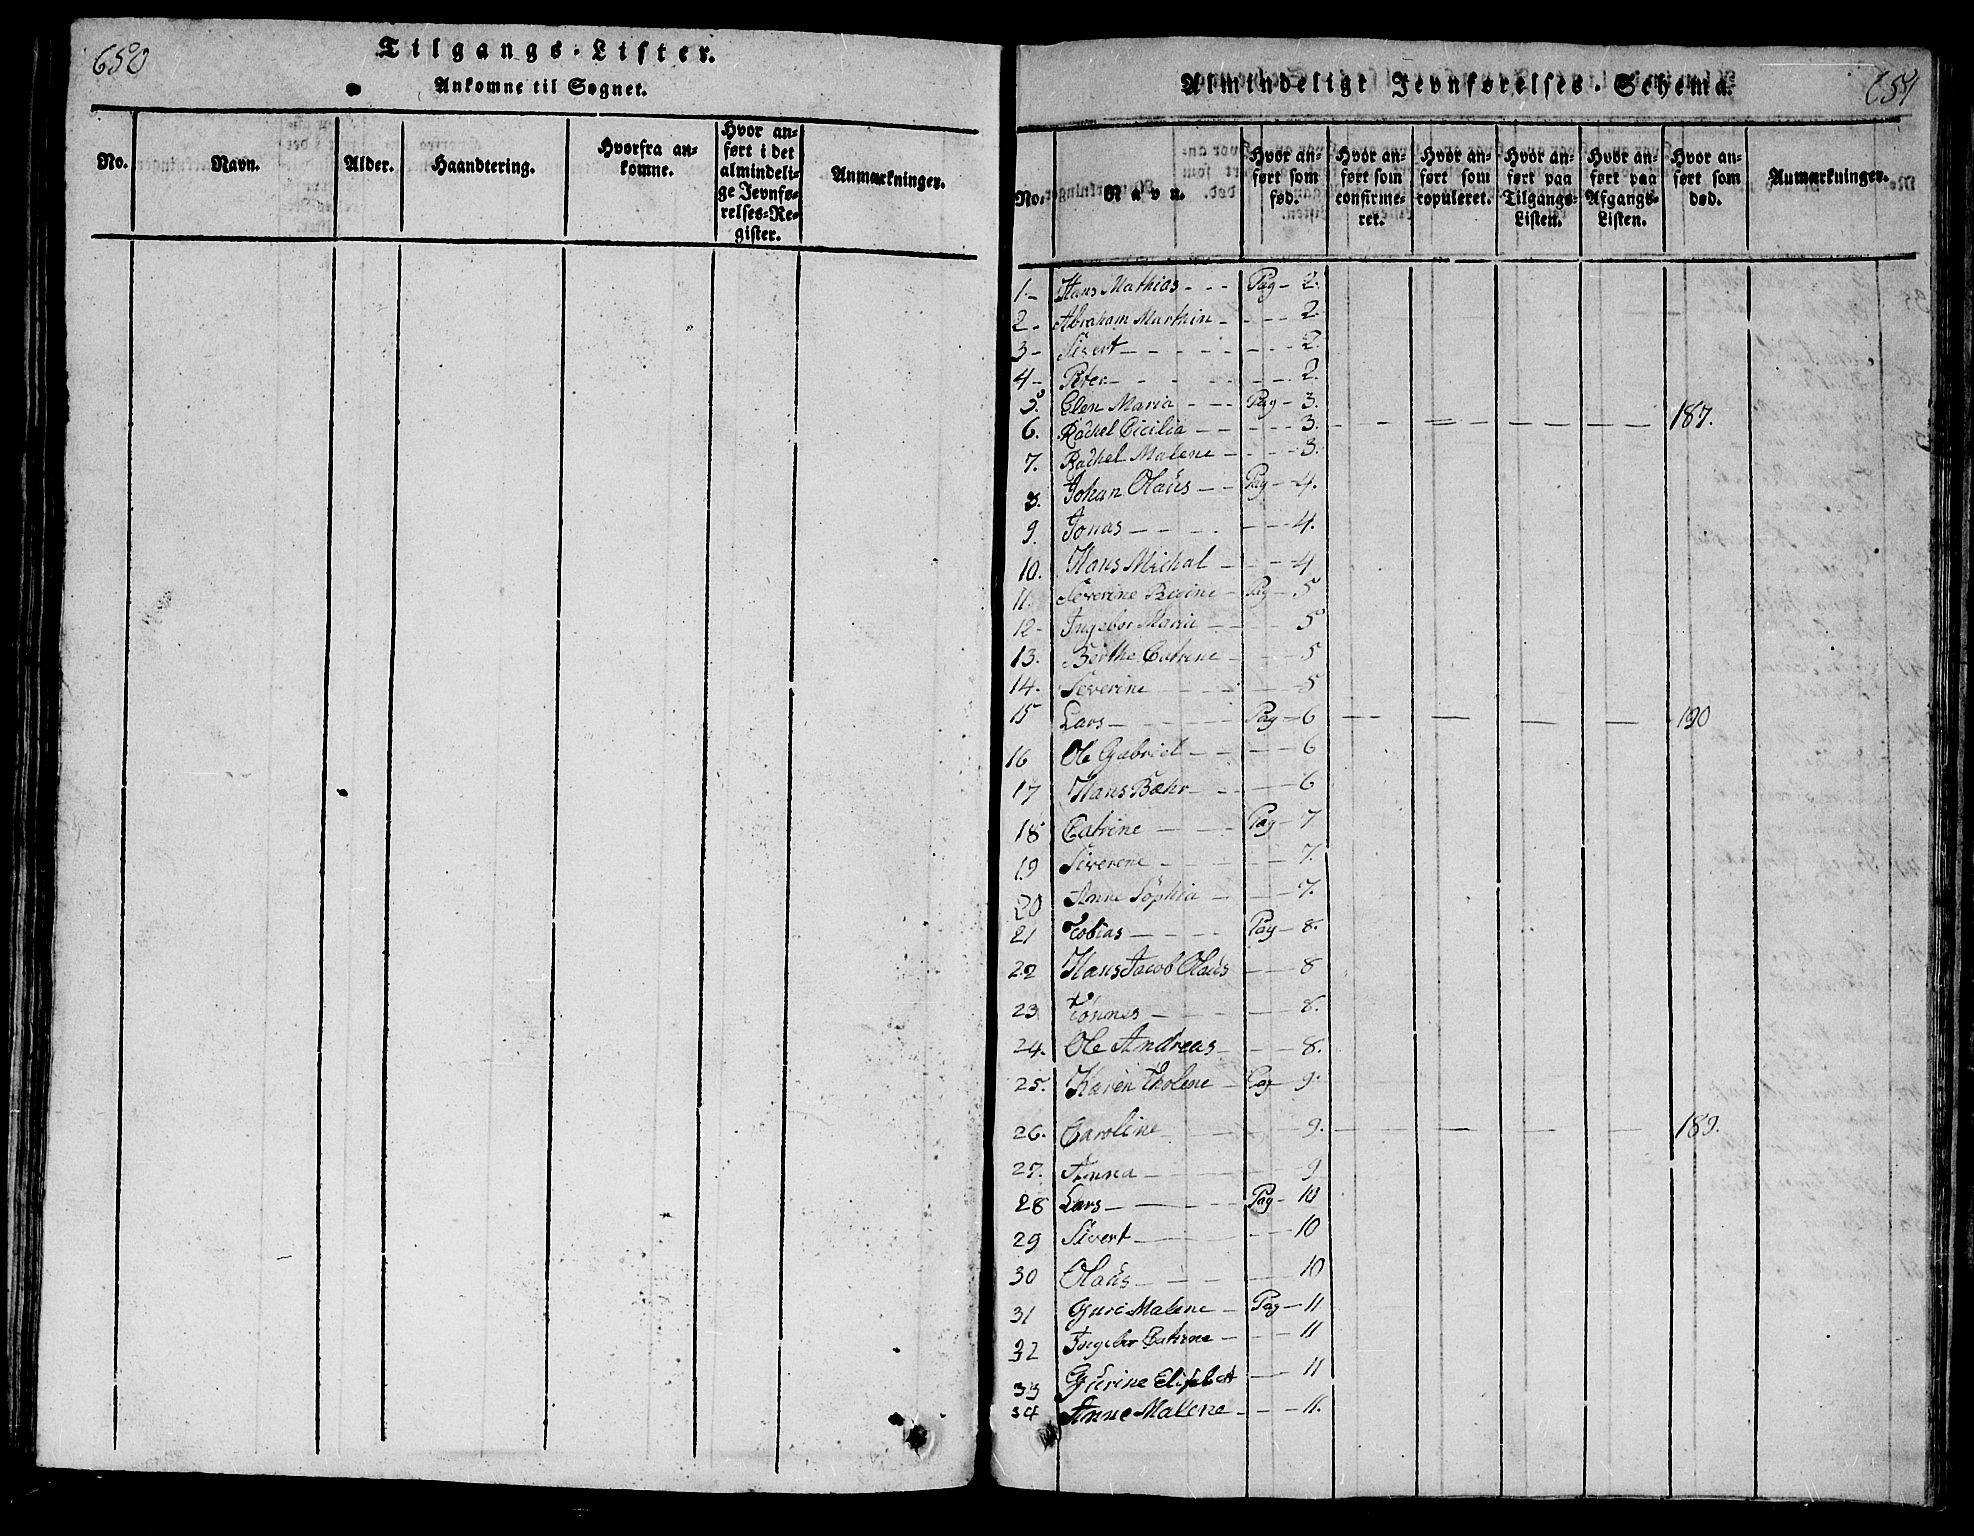 650
Tilgangs-Lister.
Ankomne til Sognet.
No. Navn. Alder. Haandtering. Hvorfra ankomne. Hvor anført i det almindelige Jevnførelses-Register. Anmærkninger.
651
Almindeligt Jevnførelses-Schema.
No. Navn. Hvor anført som fød. Hvor anført som confirmeret. Hvor anført som copuleret. Hvor anført paa Tilgangs-Listen. Hvor anført paa Afgangs-Listen. Hvor anført som død. Anmærkninger.
1. Hans Mathias - - - Pag - 2.
2 - Abraham Marthin - - - - 2
3 - Sivert - - - - - - 2.
4 - Peter - - - - - - 2.
5. Elen Maria - - - Pag - 3.
6. Rachel Cicilia - - - - - 3. - - - - - - - 187.
7. Rachel Malene - - - - 3.
8. Johan Olaus - - Pag - 4.
9. Jonas - - - - - - - 4.
10. Hans Michal - - - - 4
11. Severine - Pag - 5
12 - Ingebor Maria - - - 5
13. Berthe Catrine - - - 5
14. Severine - - - - - 5
15 Lars - - - - Pag - 6 - - - - - - 190
16 Ole Gabriel - - - - 6
17 Hans Bæhr - - - - 6
18 Catrine - - - Pag - 7
19 Siverene - - - - - 7.
20 Anne Sophia - - - - 7.
21 Tobias - - - - Pag - 8.
22 Hans Jacob Olaus - - 8
23 Tønnes - - - - 8.
24. Ole Andreas - - - 8.
25. Karen Tholene - Pag 9.
26. Caroline - - - 9. - - - - - - 189.
27. Anna - - - - - 9
28 Lars - - - - Pag - 10
29 Sivert - - - - - 10
30 Olaus - - - - - 10
31 Guri Malene - Pag - 11
32 Ingebor Catrine - - - 11
33 Gurine Elisbet - - 11
34 Anne Malene - - - 11.